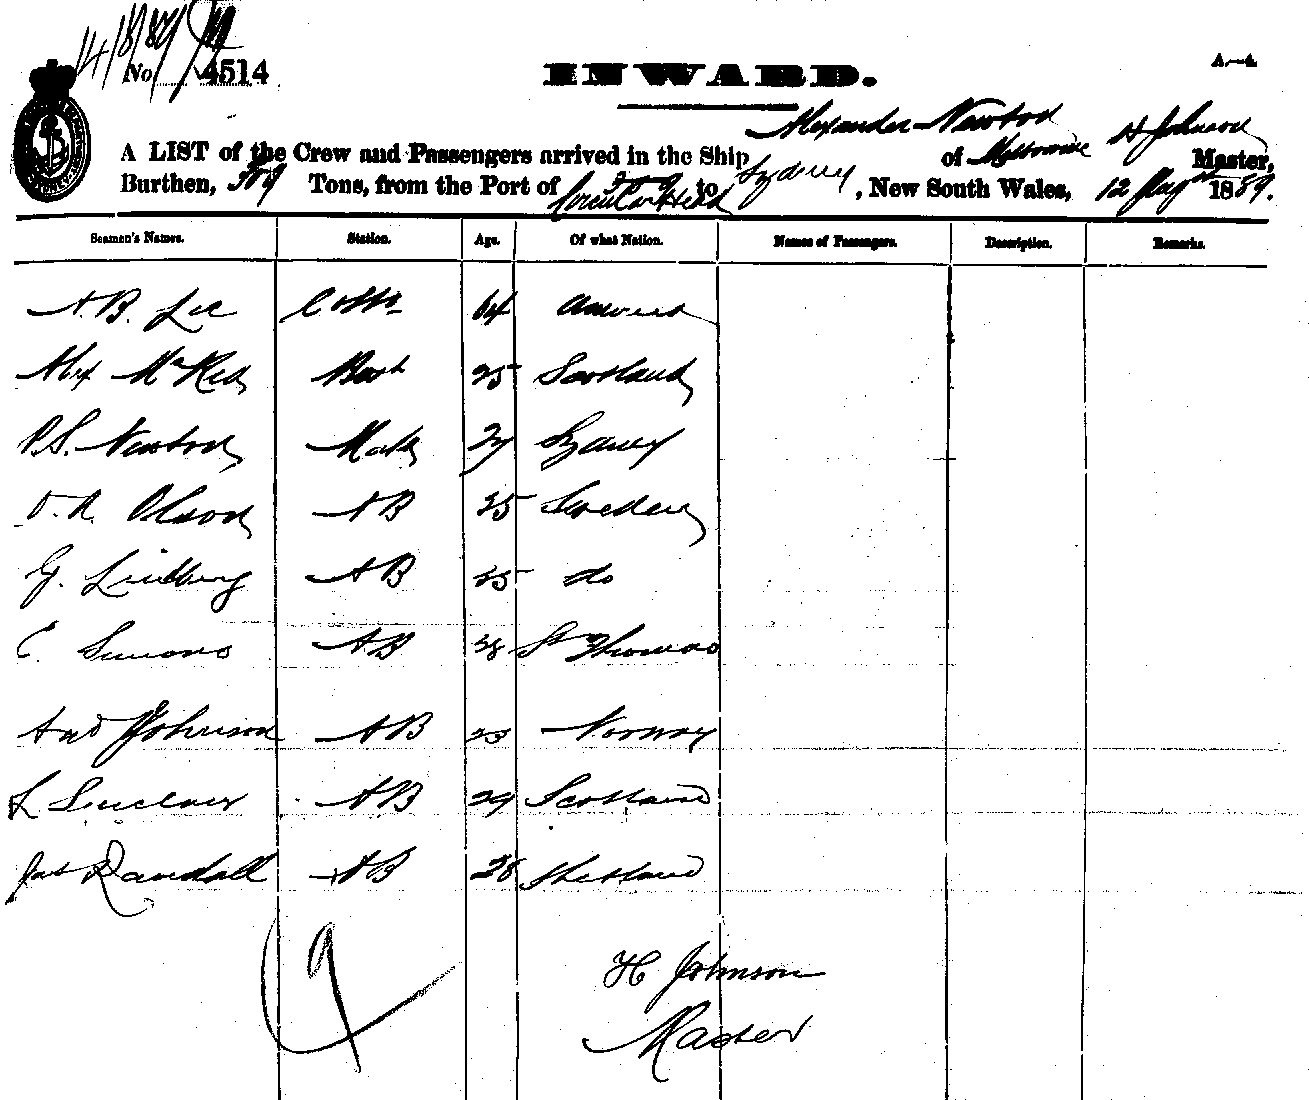 14/8/89
No. 4514
INWARD.
A LIST of the Crew and Passengers arrived in the Ship Alexander Newton of Melbourne H Johnson Master,
Burthen, 309 Tons, from the Port of Circular Head to Sydney, New South Wales, 12 1889.
Seamen's Names. Station. Age. Of what Nation. Names of Passengers. Description. Remarks.
A. B. Lee 64
Alex 25 Scotland
P.S. Newton Mate 27 Sydney
Olson AB 25 Sweden
G. Lindberg AB 25 do
C. Simons AB 38 St Thomas
And Johnson AB 23 Norway
L Sinclair AB 29 Scotland
Jas Randall AB 28 Shetland
9
H Johnson
Master